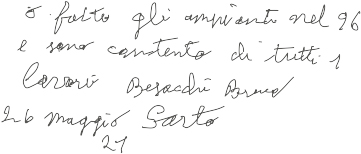 ò fatto gli ampianti nel 96
e sono contento di tutti i
lavori Besacchi Bruno
26 maggio Sarto
21